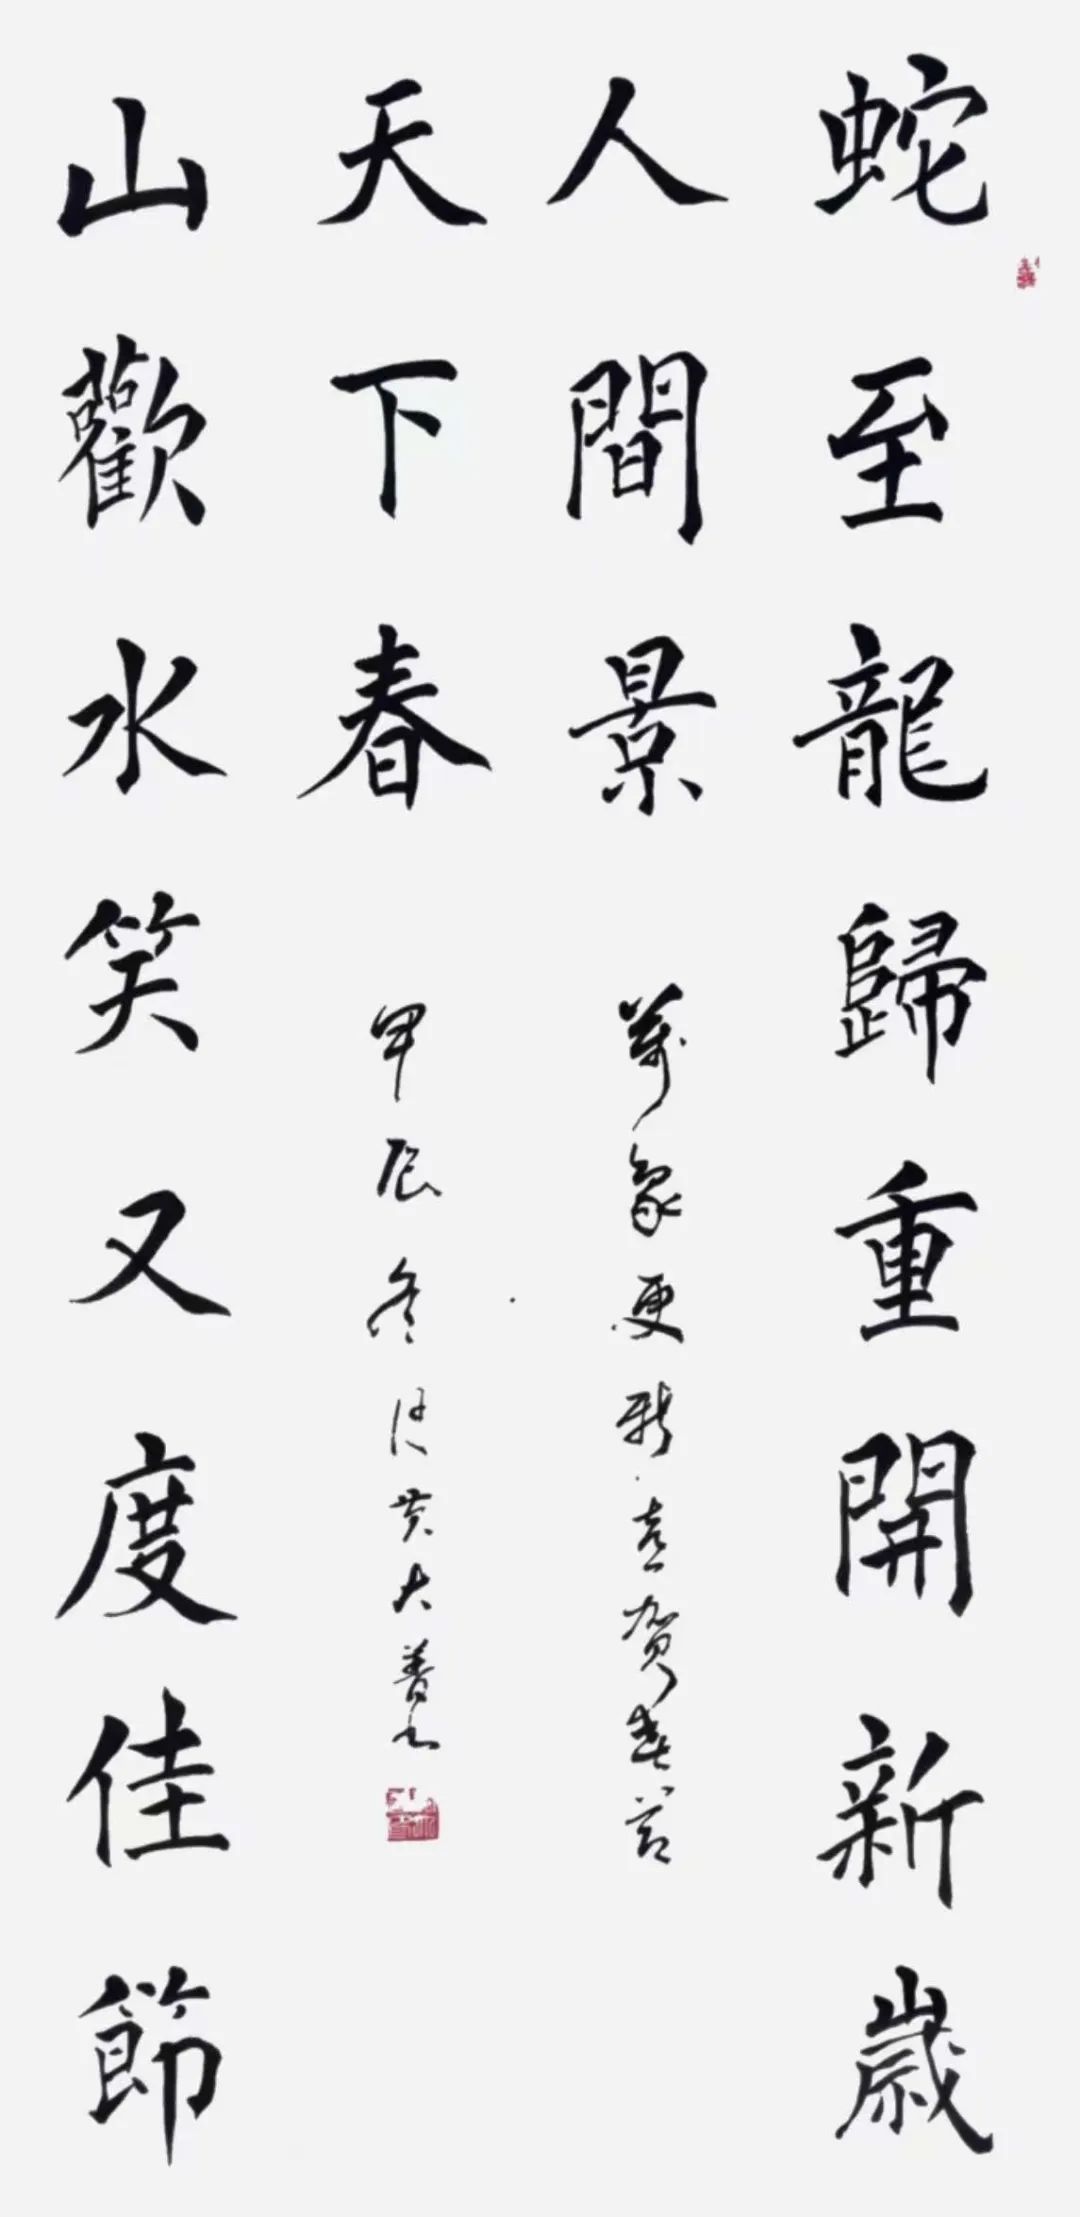 蛇至龍歸重開新歲
人間景
山歡水笑又度佳節
天下春
萬象更新喜賀春节
甲辰冬